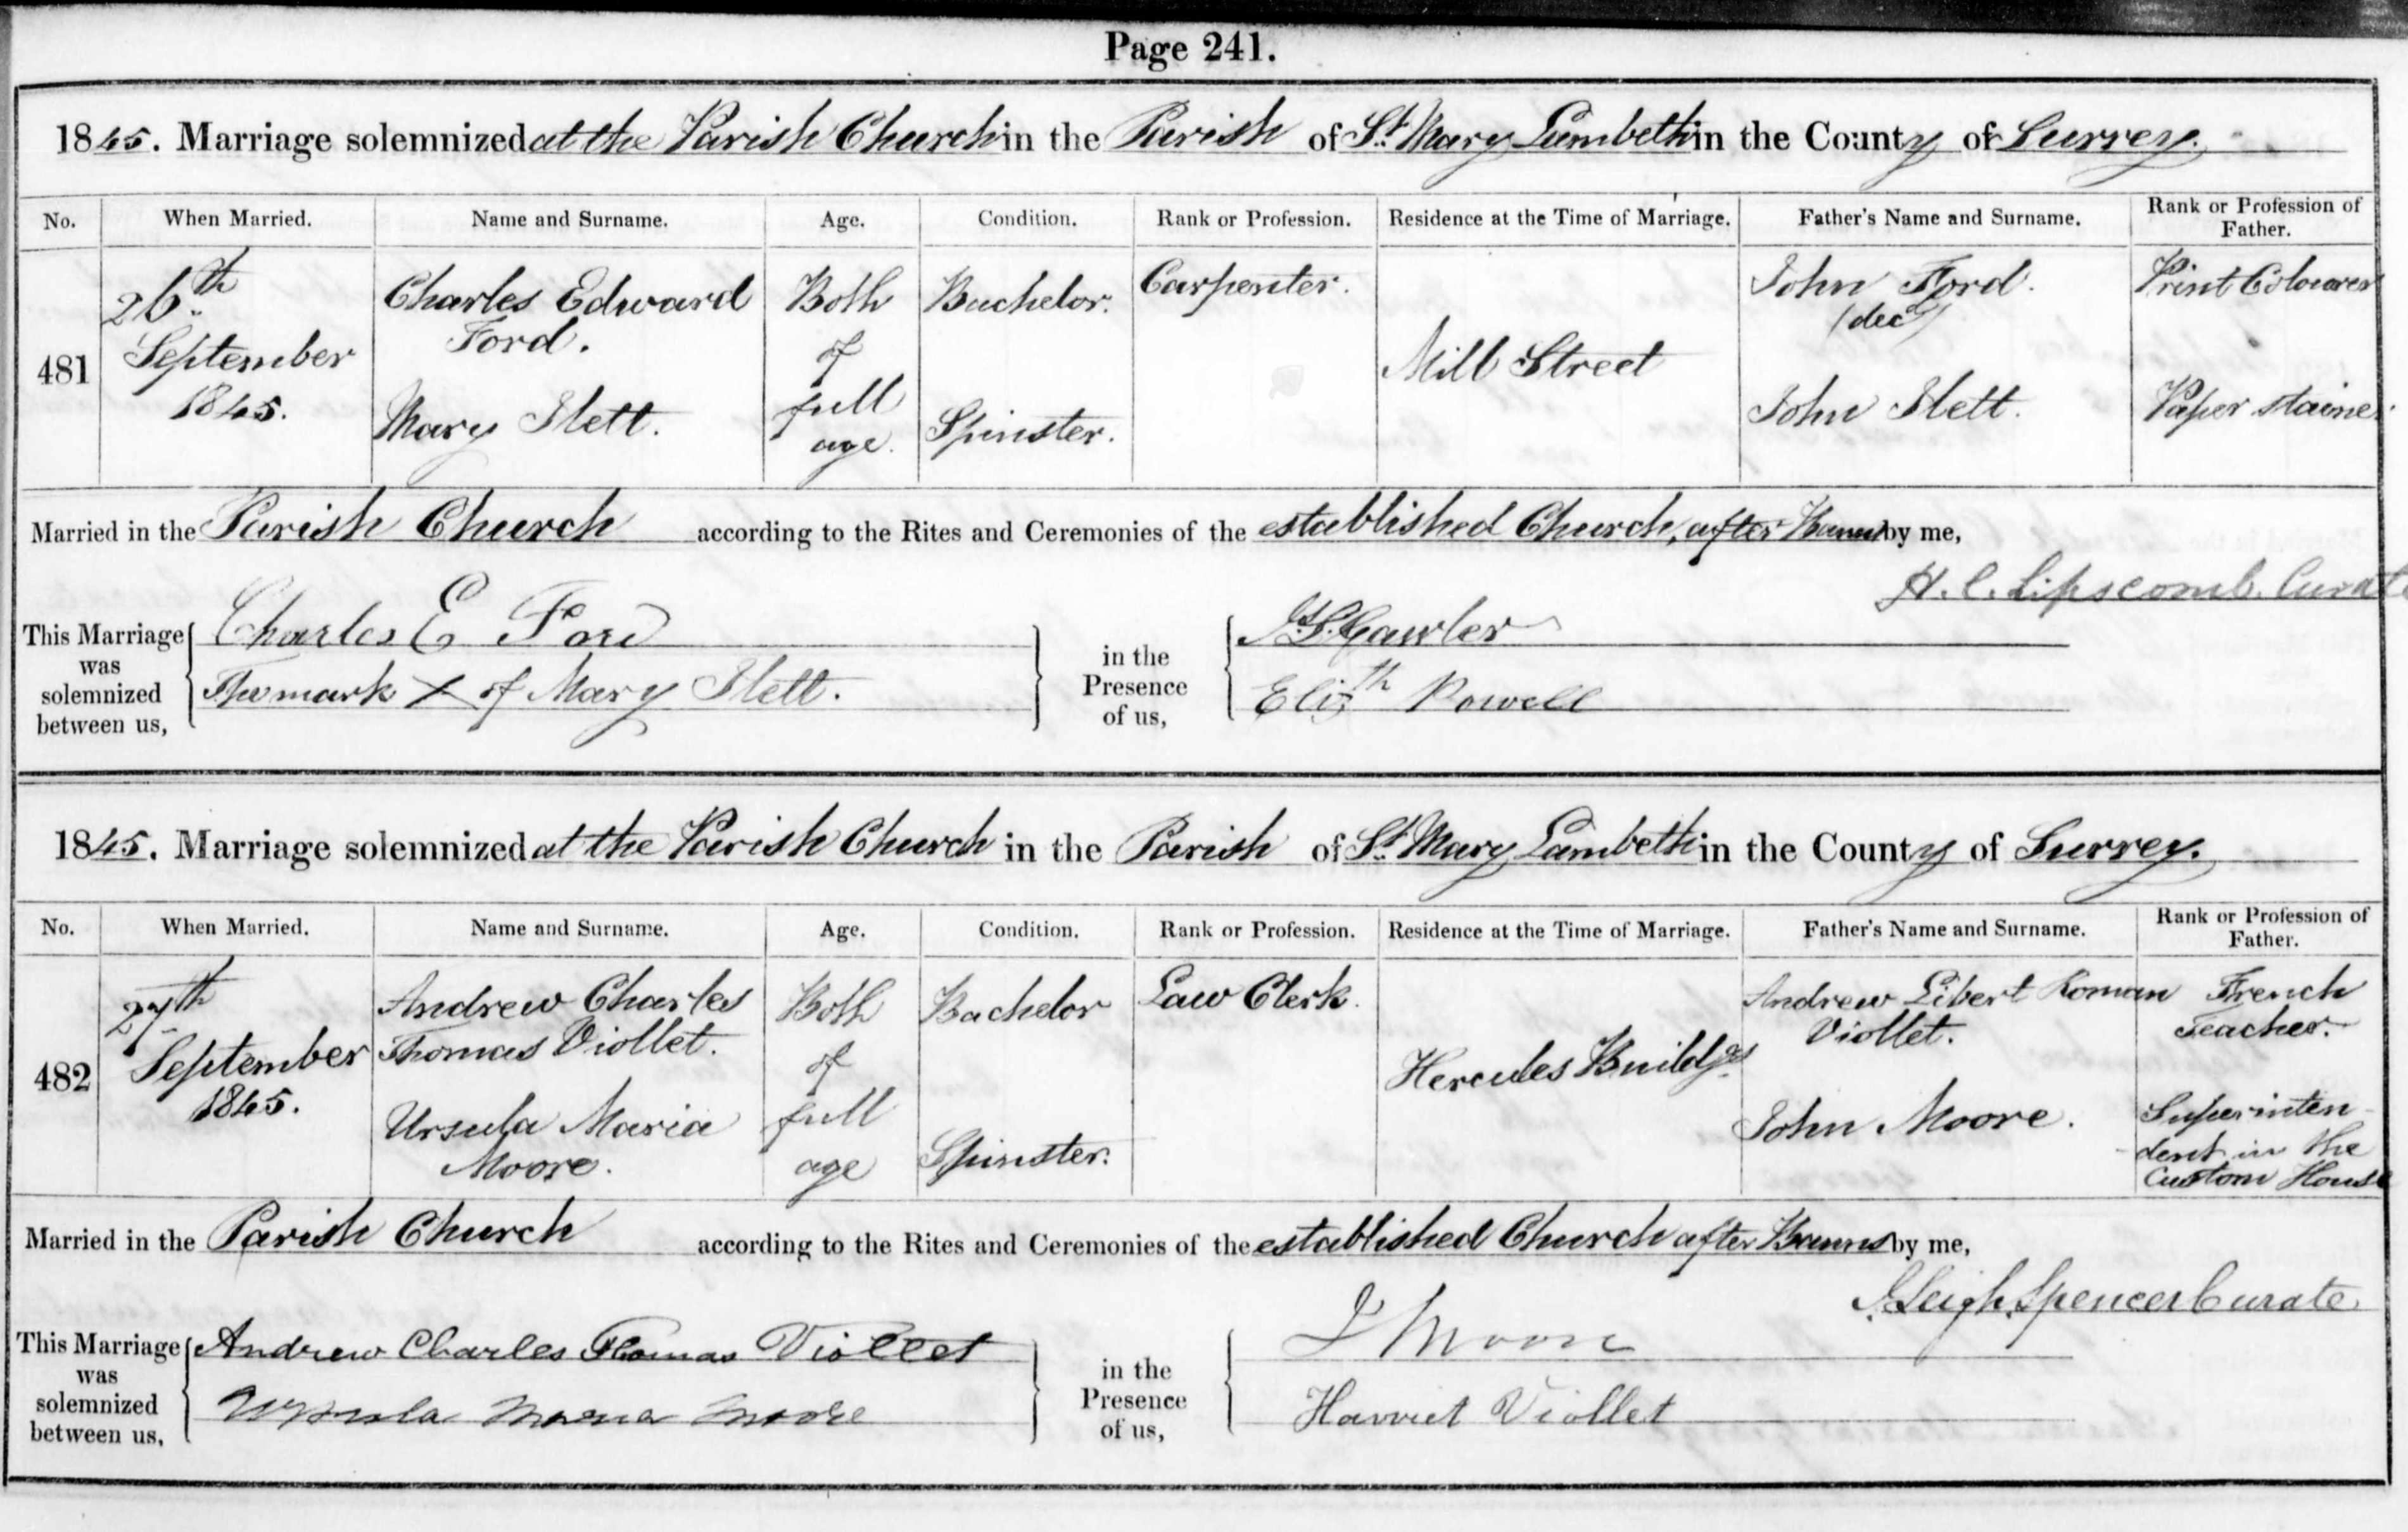 Page 241.
1845. Marriage solemnized at the Parish Church in the Parish of St. Mary Lambeth in the County of Surrey.
No. When Married. Name and Surname. Age. Condition. Rank or Profession. Residence at the Time of Marriage. Father's Name and Surname. Rank or Profession of Father.
481 26th September 1845. Charles Edward Ford. Both of full age. Bachelor. Carpenter. Mill Street John Ford. (decd) Print Colourer
Mary Ilett. Spinster. John Ilett. Paper stainer
Married in the Parish Church according to the Rites and Ceremonies of the established Church, after Banns by me,
H. C. Lipscomb. Curate
This Marriage was solemnized between us, Charles E Ford in the Presence of us, Gawler
The mark X of Mary Ilett. Elizth Powell
1845. Marriage solemnized at the Parish Church in the Parish of St. Mary Lambeth in the County of Surrey.
No. When Married. Name and Surname. Age. Condition. Rank or Profession. Residence at the Time of Marriage. Father's Name and Surname. Rank or Profession of Father.
482 27th September 1845. Andrew Charles Thomas Viollet. Both of full age Bachelor Law Clerk. Hercules Buildgs Andrew Libert Roman Viollet. French Teacher.
Ursula Maria Moore. Spinster. John Moore. Superinten-dent in the Custom House
Married in the Parish Church according to the Rites and Ceremonies of the established Church after Banns by me,
Leigh Spencer Curate
This Marriage was solemnized between us, Andrew Charles Thomas Viollet in the Presence of us, Moore
Ursula Maria Moore Harriet Viollet